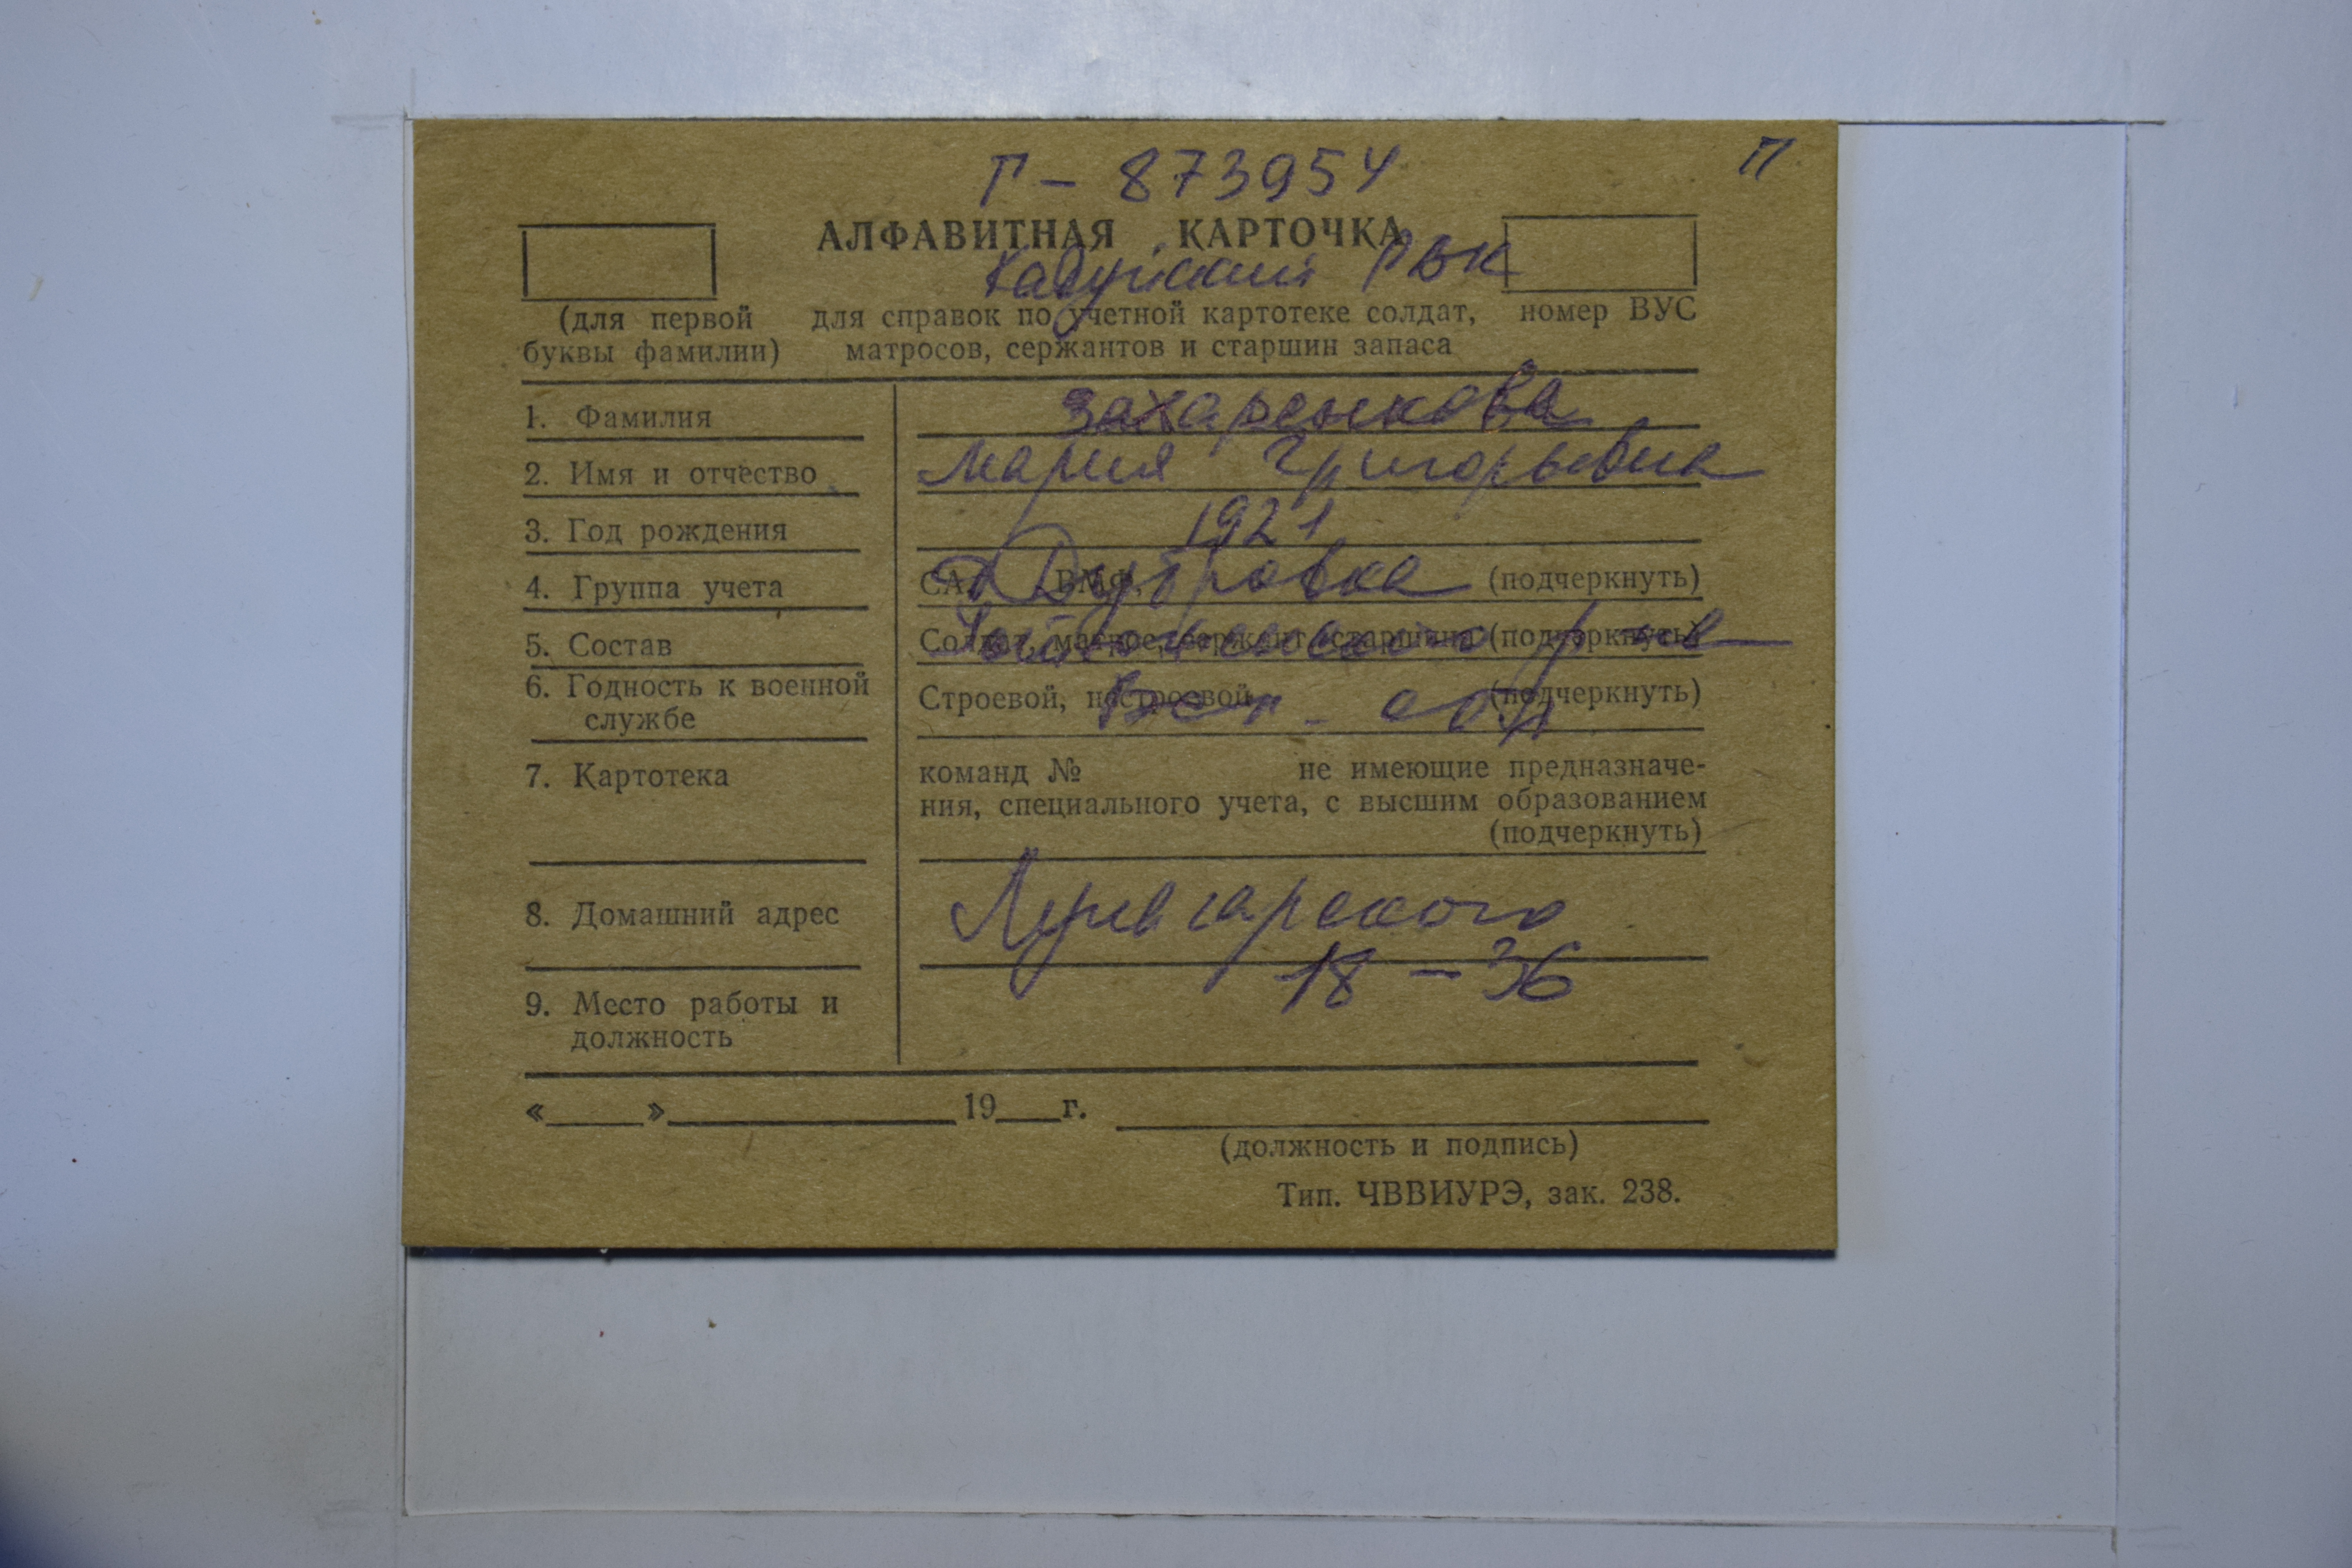 Г - 873954
П
АЛФАВИТНАЯ КАРТОЧКА
Кадуйский РВК
(для первой буквы фамилии)
для справок по учетной картотеке солдат,
матросов, сержантов и старшин запаса
номер ВУС
1. Фамилия Захаренкова
2. Имя и отчество Мария Григорьевна
3. Год рождения 1921
4. Группа учета СА, ВМФ, (подчеркнуть)
д Дубровка
5. Состав Солдат, матрос, сержант, старшина (подчеркнуть)
р-на
6. Годность к военной службе Строевой, нестроевой (подчеркнуть)
7. Картотека команд № не имеющие предназначе-
ния, специального учета, с высшим образованием
(подчеркнуть)
8. Домашний адрес Луначарского
18 - 36
9. Место работы и должность
« » 19 г.
(должность и подпись)
Тип. ЧВВИУРЭ, зак. 238.